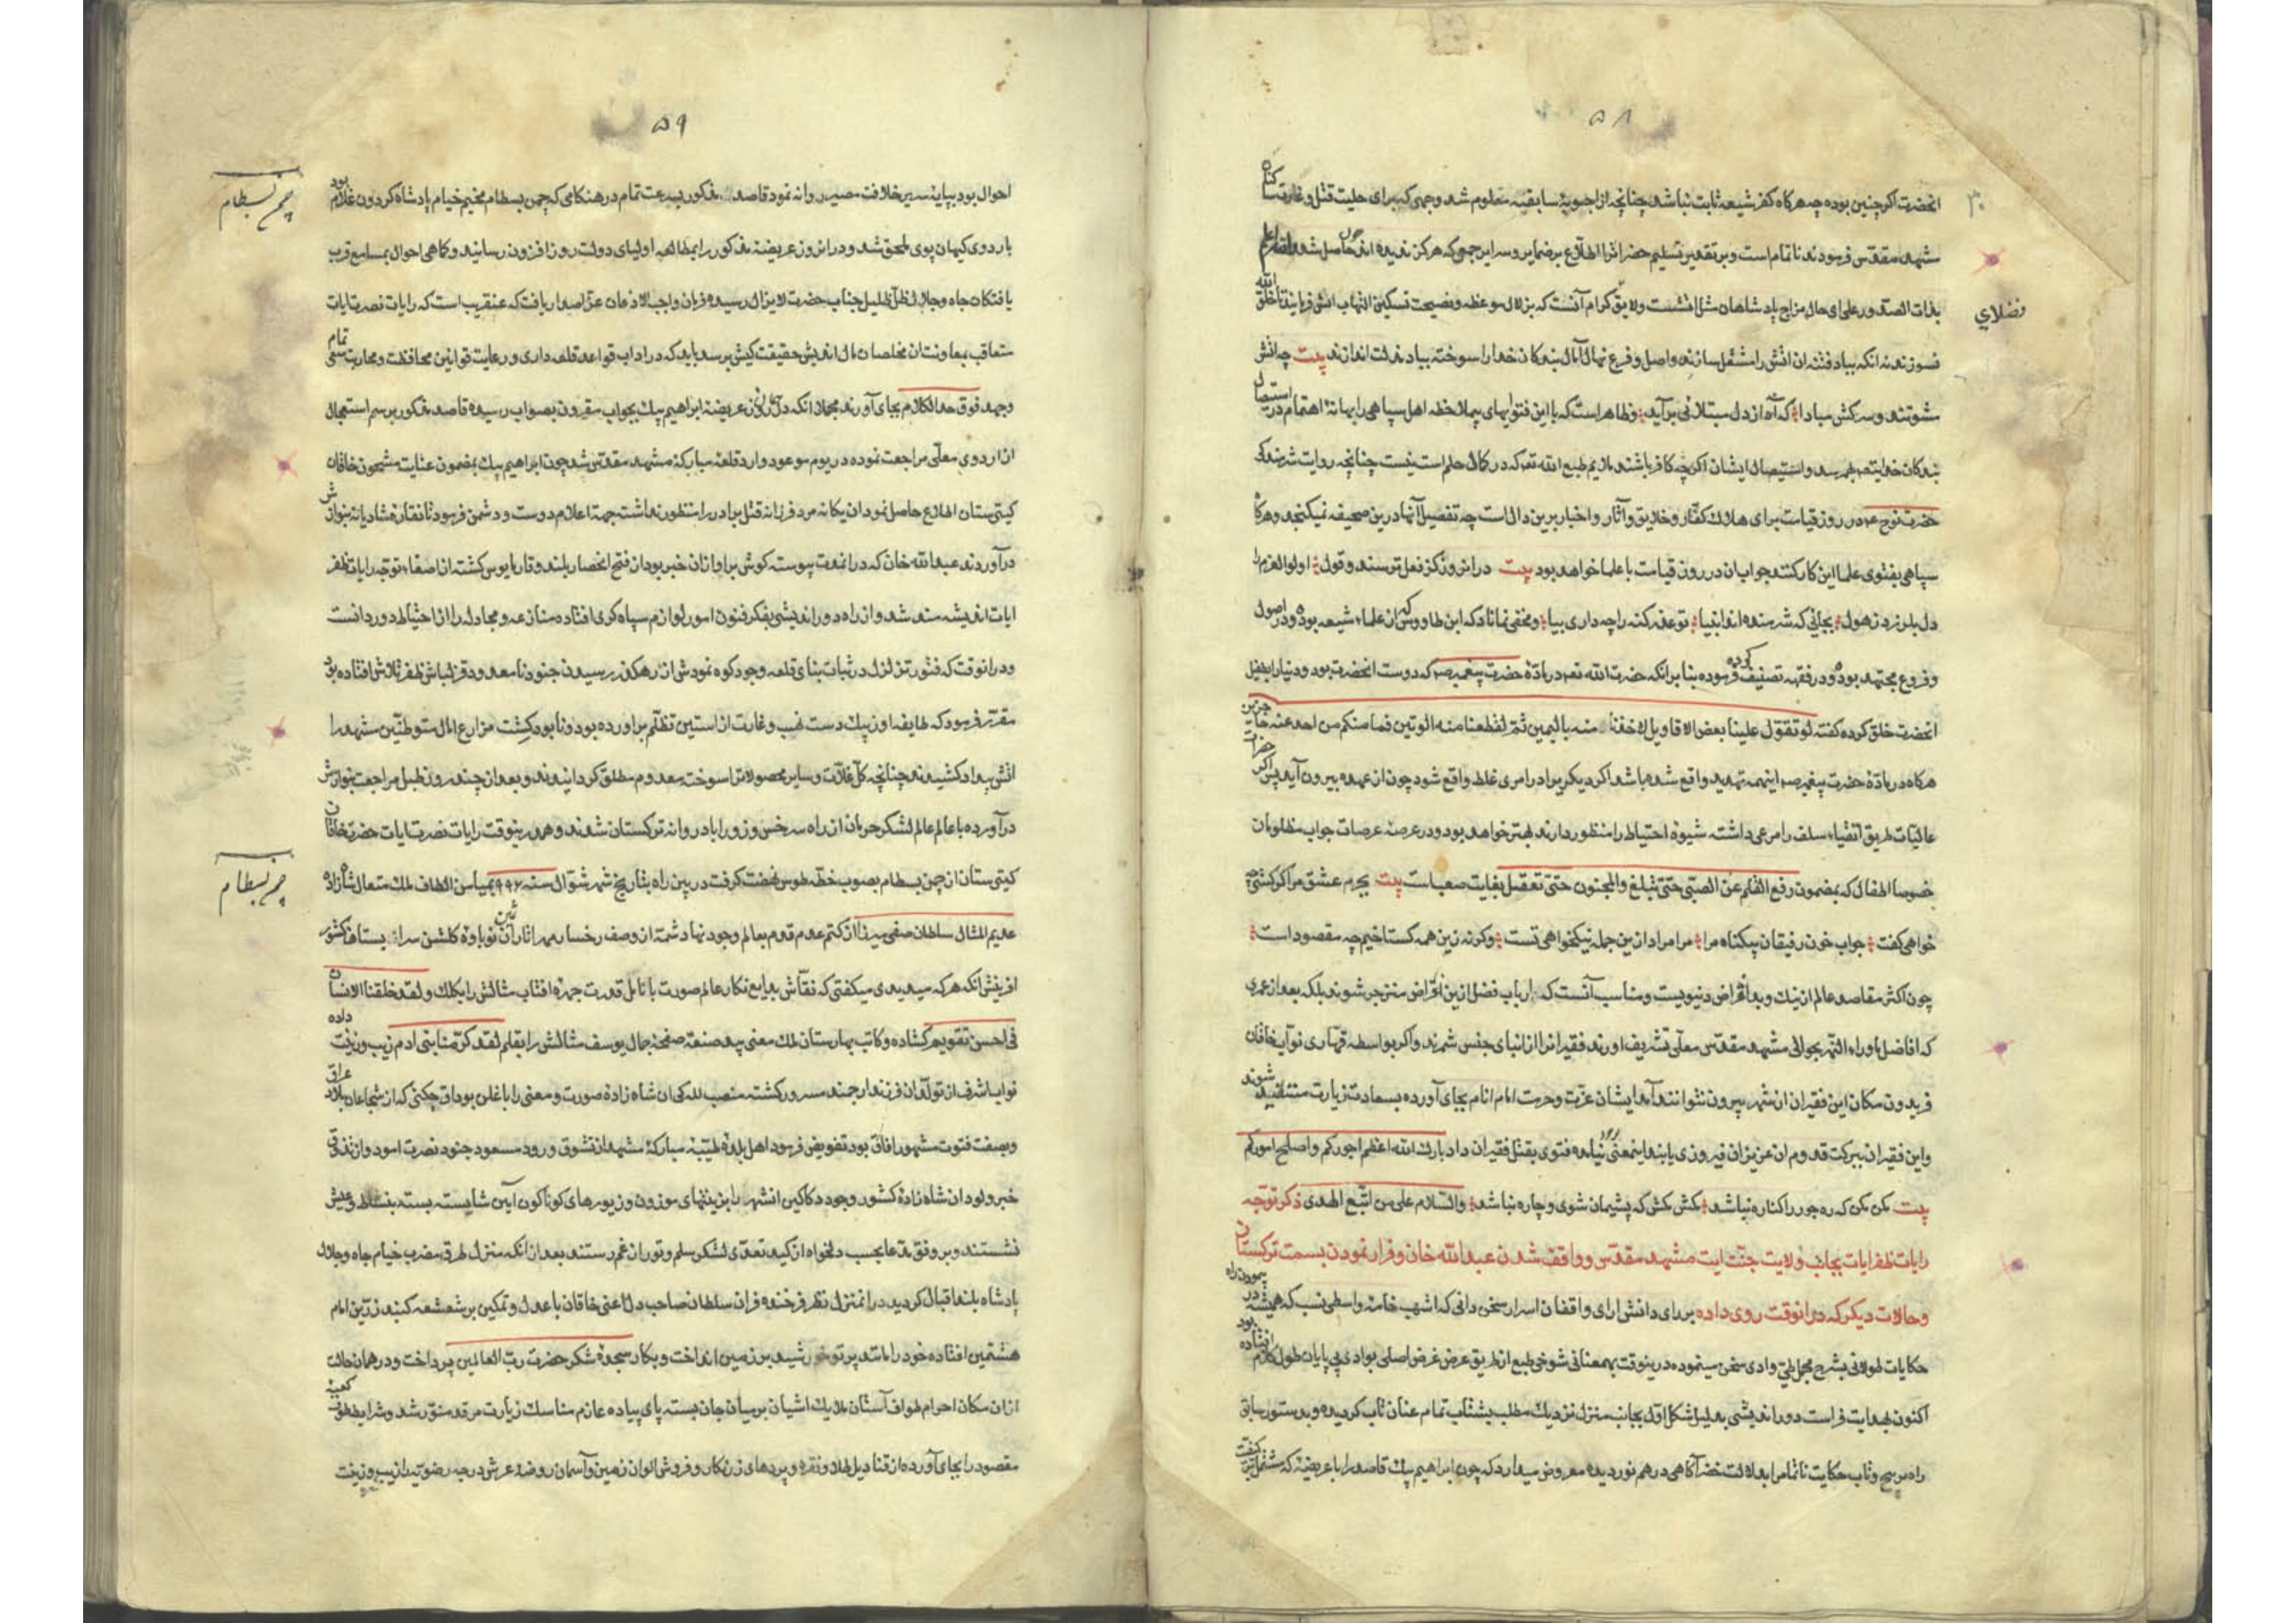 ۵۸
انحضرت اکر چنین بوده چه هرکاه کفر شیعه ثابت نباشد چنانچه از اجوبهٔ سابقه معلوم شد وجهی که برای حلیت قتل و غارت
مشهد مقدس فرمودند ناتمام است و بر تقدیر تسلیم حضراترا اطلاع بر ضمایر و سرایر جمعی که هرکز ندیده اند حاصل شد والله اعلم
بذات الصدور علی ای حال مزاج پادشاهان مثل اتشست ولایق کرام آنست که بزلال موعظه و نصیحت تسکین التهاب اتش فرمایند تا خلق الله
فضلای
نسوزند نه انکه بباد فتنه ان اتش را مشتعل سازند و اصل و فرع نهال آمال بندکان خدا را سوخته بباد مذلت اندازند بیت چو اتش
مشو تند و سرکش مبادا که آه از دل مبتلائی برآید و ظاهر است که با این فتوایهای بیملاحظه اهل سپاهی را بهانهٔ اهتمام در استیصال
بندکان خدایتعم بهم رسد و استیصال ایشان اکر چه کافر باشند ملایم طبع الله تعم که در کمال حلم است نیست چنانچه روایت شرمندکی
حضرت نوح عم در روز قیامت برای هلاک کفار و خلایق و آثار و اخبار برین دال است چه تفصیل آنها درین صحیفه نمیکنجد و هرکاه
سپاهی بفتوی علما این کار کنند جواب ان در روز قیامت با علما خواهد بود بیت در انروز کز فعل ترسند و قول اولوالعزم را
دل بلرزد ز هول بجائی که شرمنده اند انبیا تو عذر کنه را چه داری بیا و مخفی نماناد که ابن طاوس که از علماء شیعه بوده و در اصول
و فروع مجتهد بوده و در فقه تصنیف کرده بنا برانکه حضرت الله تعم در بادهٔ حضرت پیغمبر صم که دوست انحضرت بود و دنیا را بطفیل
انحضرت خلق کرده کفته لو تقول علینا بعض الاقاویل لاخذنا منه بالیمین ثم لقطعنا منه الوتین فما منکم من احد عنه حاجزین
هرکاه در بادهٔ حضرت پیغمبر صم اینهمه تهدید واقع شده باشد اکر دیکریرا در امری غلط واقع شود چون از عهده بیرون آید پس اکر حضرات
عالیات طریق اتقیاء سلف را مرعی داشته شیوهٔ احتیاط را منظور دارند بهتر خواهد بود و در عرصهٔ عرصات جواب مظلومان
خصوصا اطفال که بمضمون رفع القلم عن الصبی حتی تبلغ والمجنون حتی تعقل بغایت صعب است بیت بجرم عشق مرا کر کشی چه
خواهی کفت جواب خون رفیقان بیکناه مرا مرا مراد ازین جمله نیکخواهی تست و کرنه زین همه کستاخیم چه مقصود است
چون اکثر مقاصد عالم از نیک و بد اغراض دنیویست و مناسب آنست که ارباب فضل ازین اغراض منزجر شوند بلکه بعد از عمری
که افاضل ماوراء النهر بحوالی مشهد مقدس معلی تشریف اورند فقیرانرا از ابنای جنس شمرند و اکر بواسطه قهاری نواب خاقان
فریدون مکان این فقیران از شهر بیرون نتوانند آمد ایشان عزت و حرمت امام انام بجای آورده بسعادت زیارت مستفید شوند
و این فقیران ببرکت قدوم ان عزیزان فیروزی یابند اینمعنی نیامده فتوی بقتل فقیران داد بارک الله اعظم اجورکم و اصلح امورکم
بیت مکن مکن که ره جور را کناره نباشد مکش مکش که پشیمان شوی و چاره نباشد والسلام علی من اتبع الهدی ذکر توجه
رایات ظفرایات بجانب ولایت جنت ایت مشهد مقدس و واقف شدن عبدالله خان و فرار نمودن بسمت ترکستان
و حالات دیکر که درانوقت روی داده برای دانش ارای واقفان اسرار سخن دانی که اشهب خامهٔ واسطی نسب که همیشه در پیمودن راه
حکایات طولانی بشرح مجمل طی وادی سخن مینموده درینوقت بهمعنانی شوخی طبع از طریق عرض غرض اصلی بوادی بی پایان طول کلام افتاده بود
اکنون بهدایت فراست دوراندیشی بدلیل شکل اول بجانب منزل نزدیک مطلب بشتاب تمام عنان تاب کردیده و بدستور سابق
راه پر پیچ و تاب حکایت ناتمام را بدلالت خضر آکاهی درهم نوردیده معروض میدارد که چون ابراهیم بیک قاصد را با عریضهٔ که مشتمل بر کیفیت
۵۹
احوال بود بپایهٔ سریر خلافت مصیر روانه نمود قاصد مذکور بسرعت تمام در هنکامی که چمن بسطام مخیم خیام پادشاه کردون غلام بود
چمن بسطام
باردوی کیهان پوی ملحق شد و در انروز عریضهٔ مذکور را بمطالعهٔ اولیای دولت روز افزون رسانید و کماهی احوال بمسامع قرب
یافتکان جاه و جلال ظل ظلیل جناب حضرت لایزال رسیده فرمان واجب الاذعان عز اصدار یافت که عنقریب است که رایات نصرت ایات
متعاقب بمعاونت ان مخلصان مآل اندیش حقیقت کیش برسد باید که در اداب قواعد قلعه داری و رعایت قوانین محافظت و محاربت سعی تمام
و جهد فوق حد الکلام بجای آورند مجملا انکه در آنروز عریضهٔ ابراهیم بیک بجواب مقرون بصواب رسیده قاصد مذکور برسم استعجال
از اردوی معلی مراجعت نموده در یوم موعود وارد قلعهٔ مبارکهٔ مشهد مقدس شد چون ابراهیم بیک بمضمون عنایت مشحون خاقان
کیتی ستان اطلاع حاصل نمود ان یکانه مرد فرزانه قتل برادر را منظور نداشته جهة اعلام دوست و دشمن فرمود تا نقاره شادیانه بنوازش
درآوردند عبدالله خان که درانمدت پیوسته کوش بر اواز ان خبر بود از فتح انحصار بلند وقار مایوس کشته از اصغاء توجه رایات ظفر
ایات اندیشه مند شد و از راه دوراندیشی بفکر فنون امور لوازم سپاه کری افتاده منازعه و مجادله را از احتیاط دور دانست
و درانوقت که فتور تزلزل در ثبات بنای قلعه وجود کوه نمودش از رهکذر رسیدن جنود نامعدود قزلباش ظفر تلاش افتاده بود
مقرر فرمود که طایفه اوزبیک دست نهب و غارت از استین تظلم براورده بود و نابود کشت مزارع اهالی متوطنین مشهد را
اتش بیداد کشیدند چنانچه کل غلات و سایر محصولات را سوخته معدوم مطلق کردانیدند و بعد از چند روز طبل مراجعت بنوازش
درآورده با عالم عالم لشکر حرمان از راه سرخس و زورآباد روانه ترکستان شدند و همدرینوقت رایات نصرت ایات حضرت خاقان
کیتی ستان از چمن بسطام بصوب خطه طوس نهضت کرفت در بین راه بتاریخ شهر شوال سنه ۹۹۶ بمیامن الطاف ملک متعال شاهزاده
چمن بسطام
عدیم المثال سلطان صفی میرزا از کتم عدم قدم بعالم وجود نهاد شمهٔ از وصف رخسار مهر اثار آن نوباوهٔ کلشن سرابستان کشور
افرینش انکه هر که میدیدی میکفتی که نقاش بدایع نکار عالم صورت بانامل قدرت چهرهٔ افتاب مثالش را بکلک ولقد خلقنا الانسان
فی احسن تقویم کشاده و کاتب بهارستان ملک معنی بید صنعت صفحهٔ جمال یوسف مثالش را بقلم لقد کرمنا بنی ادم زیب و زینت داده
نواب اشرف از تولد ان فرزند ارجمند مسرور کشته منصب للکی ان شاه زادهٔ صورت و معنی را باغلن بوداق چکنی که از شجاعان بلاد عراق
و بصفت فتوت مشهور افاق بود تفویض فرمود اهل بلدهٔ طیبهٔ مبارکهٔ مشهد از تشوق ورود مسعود جنود نصرت امود و از تذوق
خبر ولود ان شاه زادهٔ کشور وجود دکاکین انشهر را بزینتهای موزون و زیورهای کوناکون آیین شایسته بسته بنشاط و عیش
نشستند و بر وفق مدعا بحسب دلخواه از کید تعدی لشکر سلم و تور از غم رستند بعد از انکه منزل طرق مضرب خیام جاه و جلال
پادشاه بلند اقبال کردید درانمنزل نظر فرخنده فر ان سلطان صاحب دل اعنی خاقان با عدل و تمکین بر شعشعه کنبد زرین امام
هشتمین افتاده خود را مانند پرتو خورشید بر زمین انداخت و بکار سجدهٔ شکر حضرت رب العالمین پرداخت و در همان حالت
ازان مکان احرام طواف آستان ملایک اشیان بر میان جان بسته پای پیاده عازم مناسک زیارت مرقد منور شد و شرایط طوف کعبهٔ
مقصود را بجای آورده از قنادیل طلا و نقره و پردهای زرنکار و فروش الوان زمین و آسمان روضهٔ عرش درجه رضویه را زیب و زینت